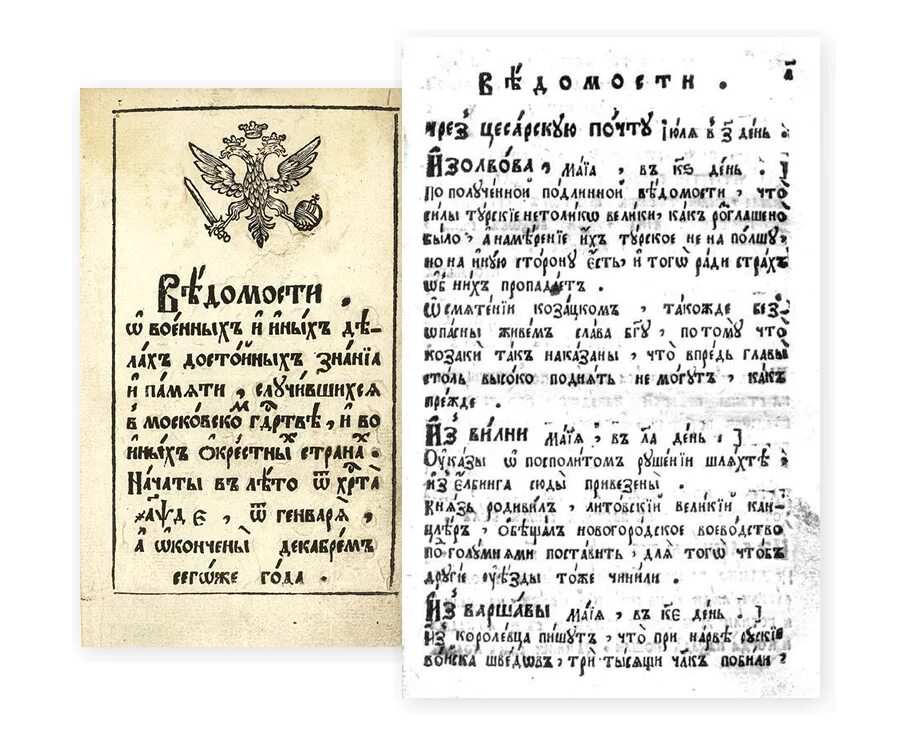 Вѣ́домости .
ѿ вое́нныхъ и҆ и҆ны́хъ дѣ́-
ла́хъ досто́йныхъ зна́нїа
и҆ па́мяти , случи́вшихся
в моско́вском гдⷭ҇ртвѣ , и҆ во
и҆ны́хъ ѻ҆кре́стныхъ страна́хъ .
На́чаты въ лѣ́то ѿ хрⷭ҇та̀
҂аѱд є҃ , ѿ генваря̀ ,
а҆ ѡ҆ко́нчены̀ декабре́мъ
сегѡ́же го́да .
Вѣ́домости . а҃
чрез̾ цеса́рскую по́чту і҆ю́лѧ в з҃ де́нь .
И҆золво́ва , ма́їа , въ к҃ѕ де́нь .
По полу́ченной по́длинной вѣ́домости , что
си́лы ту́рскїе нето́ликѡ вели́ки , ка́къ роглашено̀
бы́ло , а҆ намѣ́ренїе и҆́хъ ту́рское не на по́лшу ,
но на и҆́ную сто́рону є҆́сть , и҆ тогѡ̀ ра́ди стра́хъ
ѡ҆б ни́хъ пропада́етъ .
Ѡ҆ смяте́нїи коза́цком , та́кожде без̾-
ѡпа́сны живе́мъ сла́ва бг҃у , по то́му что
козакѝ та́къ нака́заны , что впре́дь главы̀
сто́ль высо́ко подня́ть не мо́гутъ , ка́къ
пре́жде .
И҆з̾ ви́лни ма́їѧ , въ л҃а де́нь .
Оу҆ка́зы ѡ҆ посполи́том руше́нїи шля́хтѣ
из̾ є҆лбинга сюды̀ привезены̀ .
Кня́зь родиви́лъ , лито́вскїй вели́кїй ка́н-
цлѣръ , ѻ҆бѣща́лъ новогоро́дское воево́дство
по голу́мнями поста́вить , для тогѡ̀ что́бъ
дру́гїе оу҆ѣ́зды то́же чини́ли .
И҆з̾ варша́вы ма́їѧ , въ к҃є де́нь .
Из̾ короле́вца пи́шутъ , что при на́рвѣ ру́скїе
войска̀ шве́дѡвъ , трѝ ты́сящи чл҃къ поби́ли ,